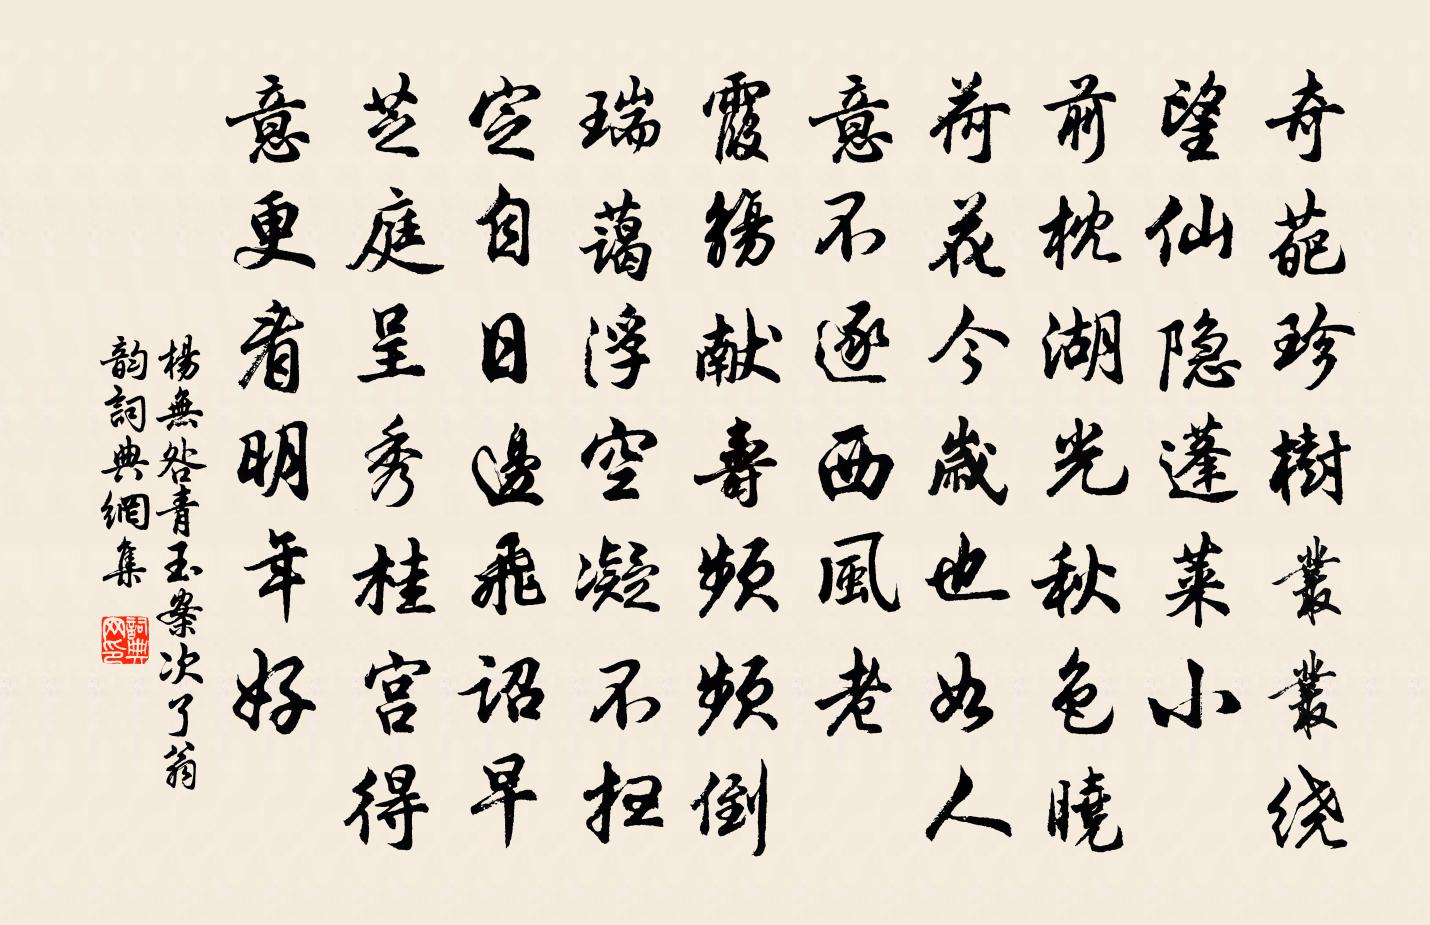 奇葩珍樹叢叢绕
望仙隐蓬莱小
前枕湖光秋色曉
荷花今歲也如人
意不逐西風老
霞觴献壽频频倒
瑞藹浮空凝不扫
定自日邊飛詔早
芝庭呈秀桂宫得
意更看明年好
楊無咎青玉案次了翁
韵詞典網集
詞典网印